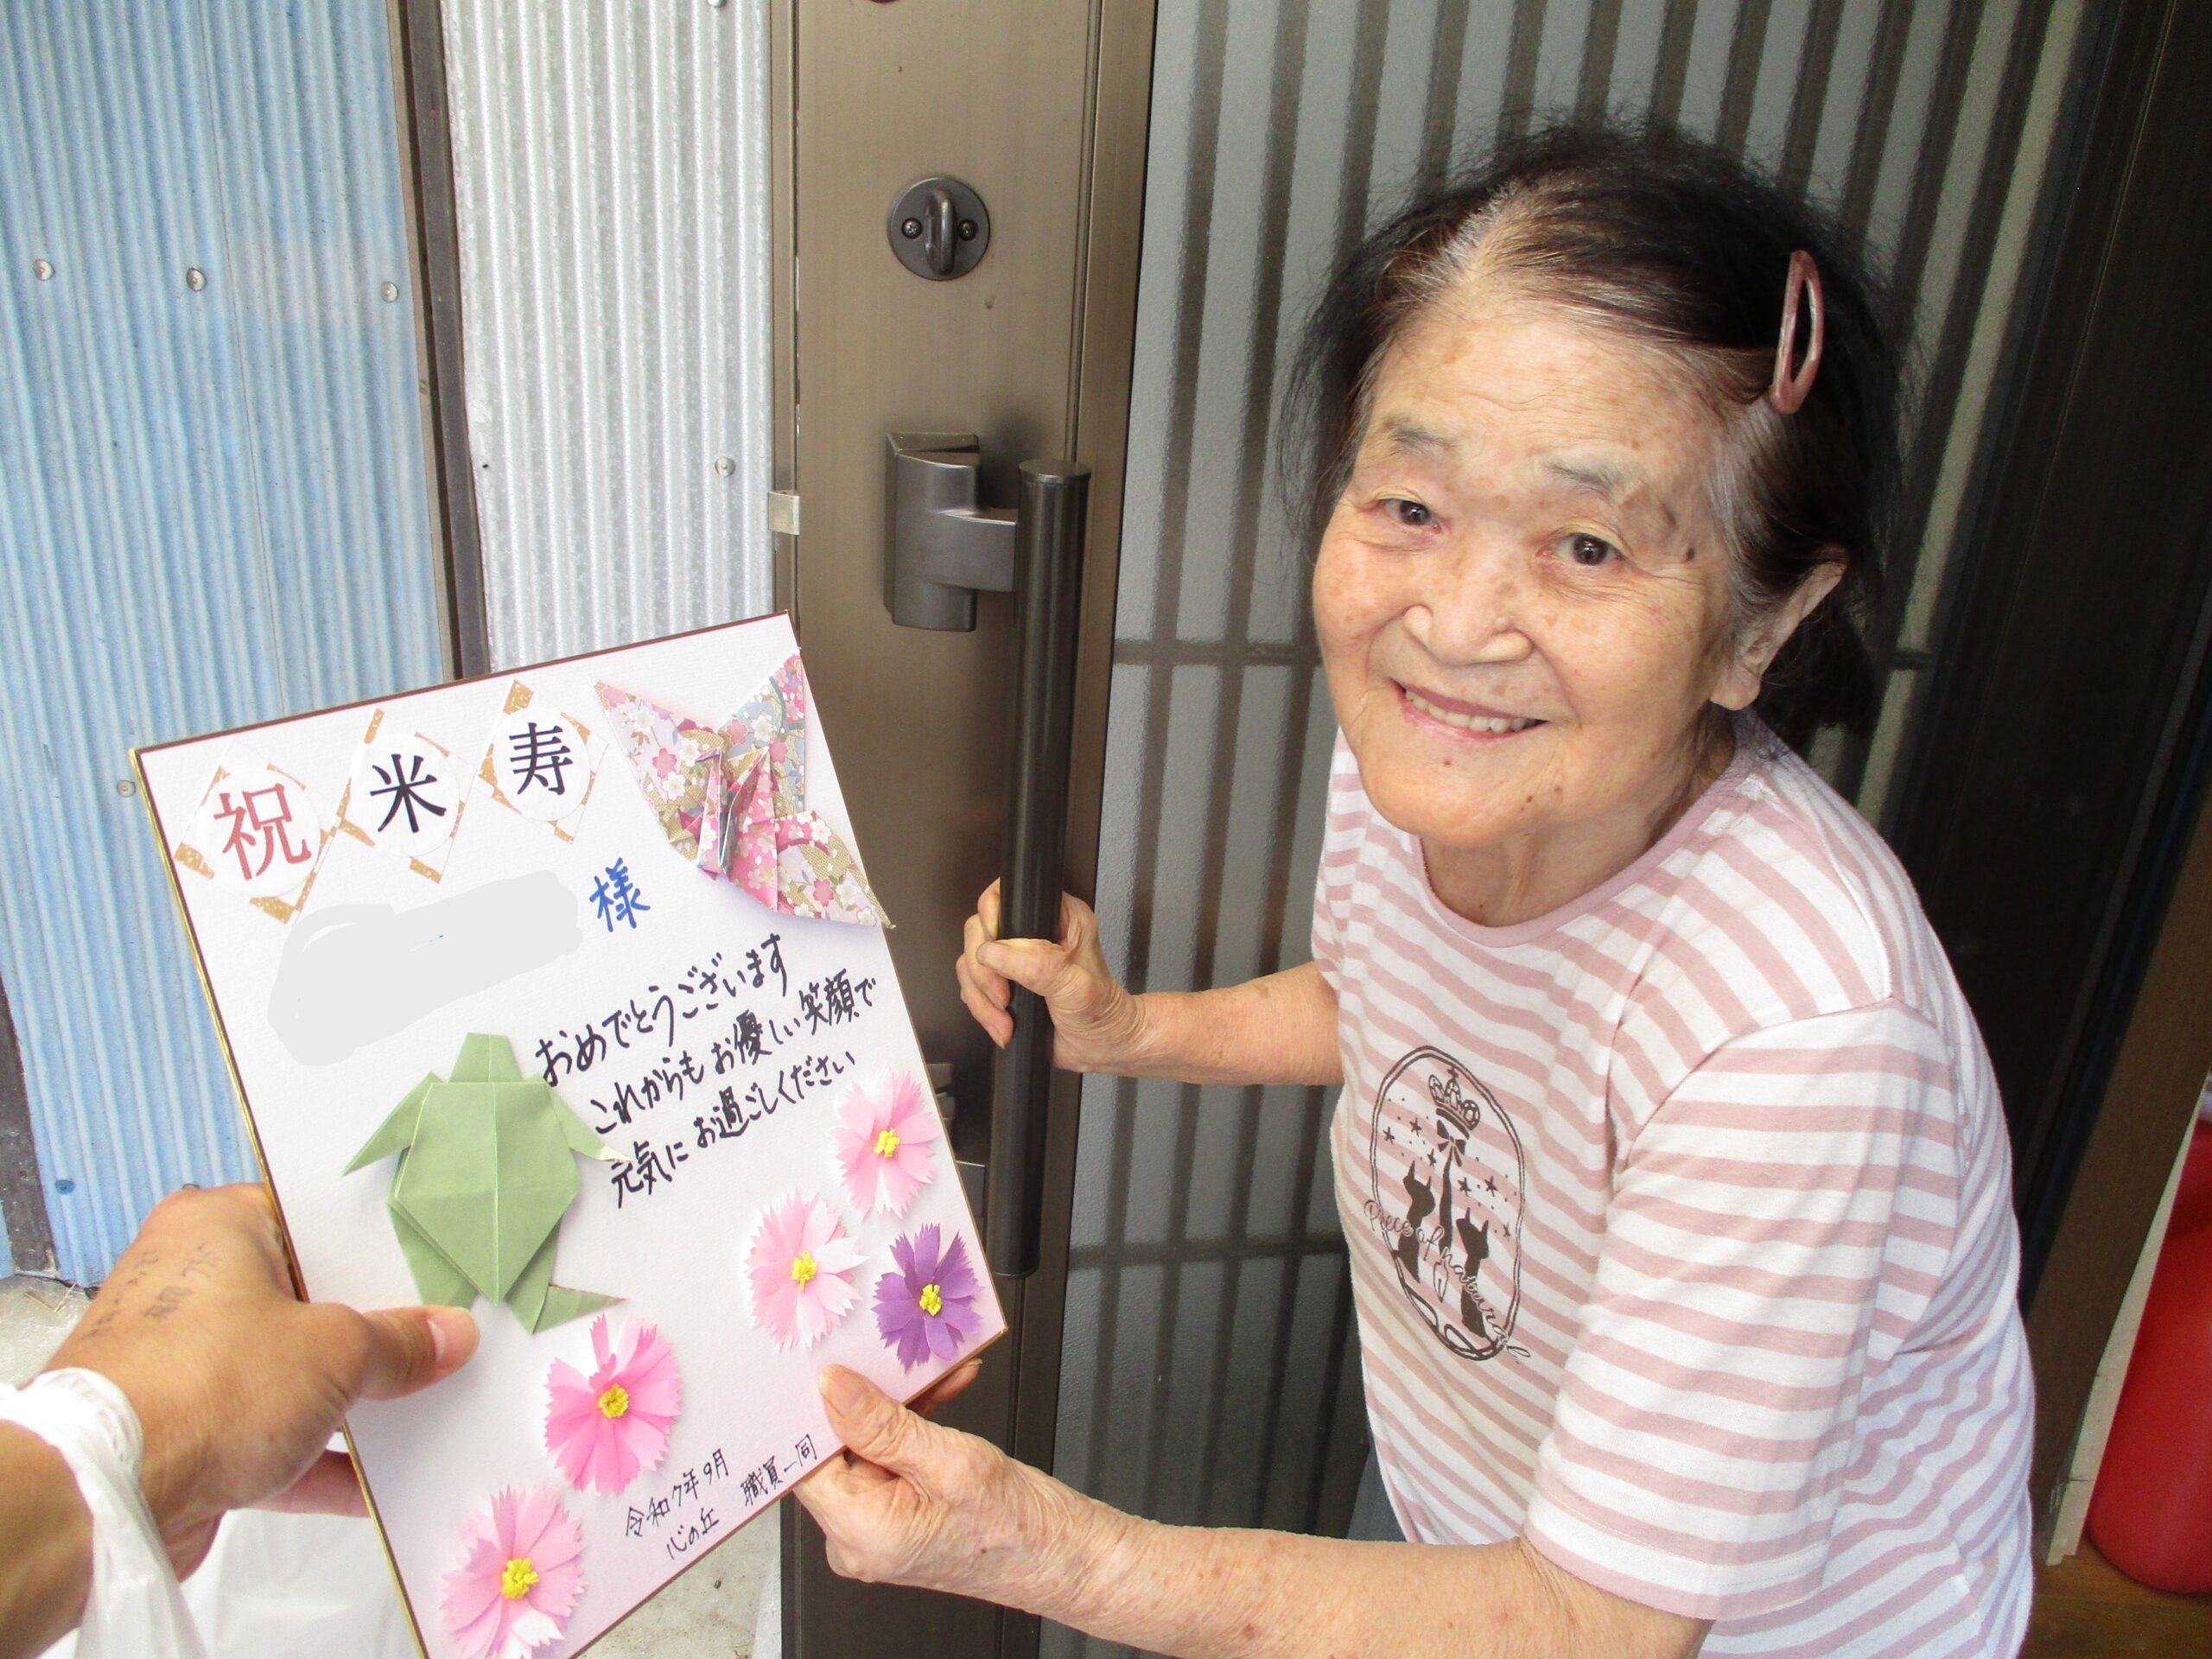 祝 米 寿
様
おめでとうございます
これからもお優しい笑顔で
元気にお過ごしください
令和7年9月
心の丘 職員一同
Piece of natural